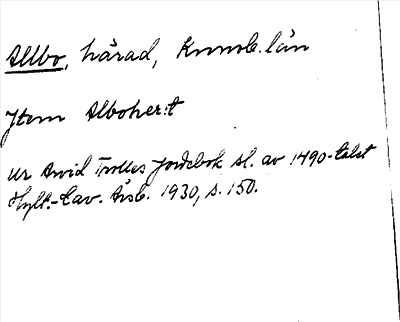 Allbo, härad, Kronob. län
Jtem Alboher:t
ur Arvid Trolles Jordebok sl. av 1490-talet
Hylt.-Cav. Årsb. 1930, s. 150.